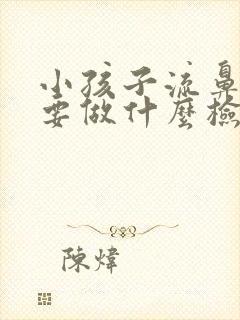 小孩子流鼻
要做什麼檢
陳煒